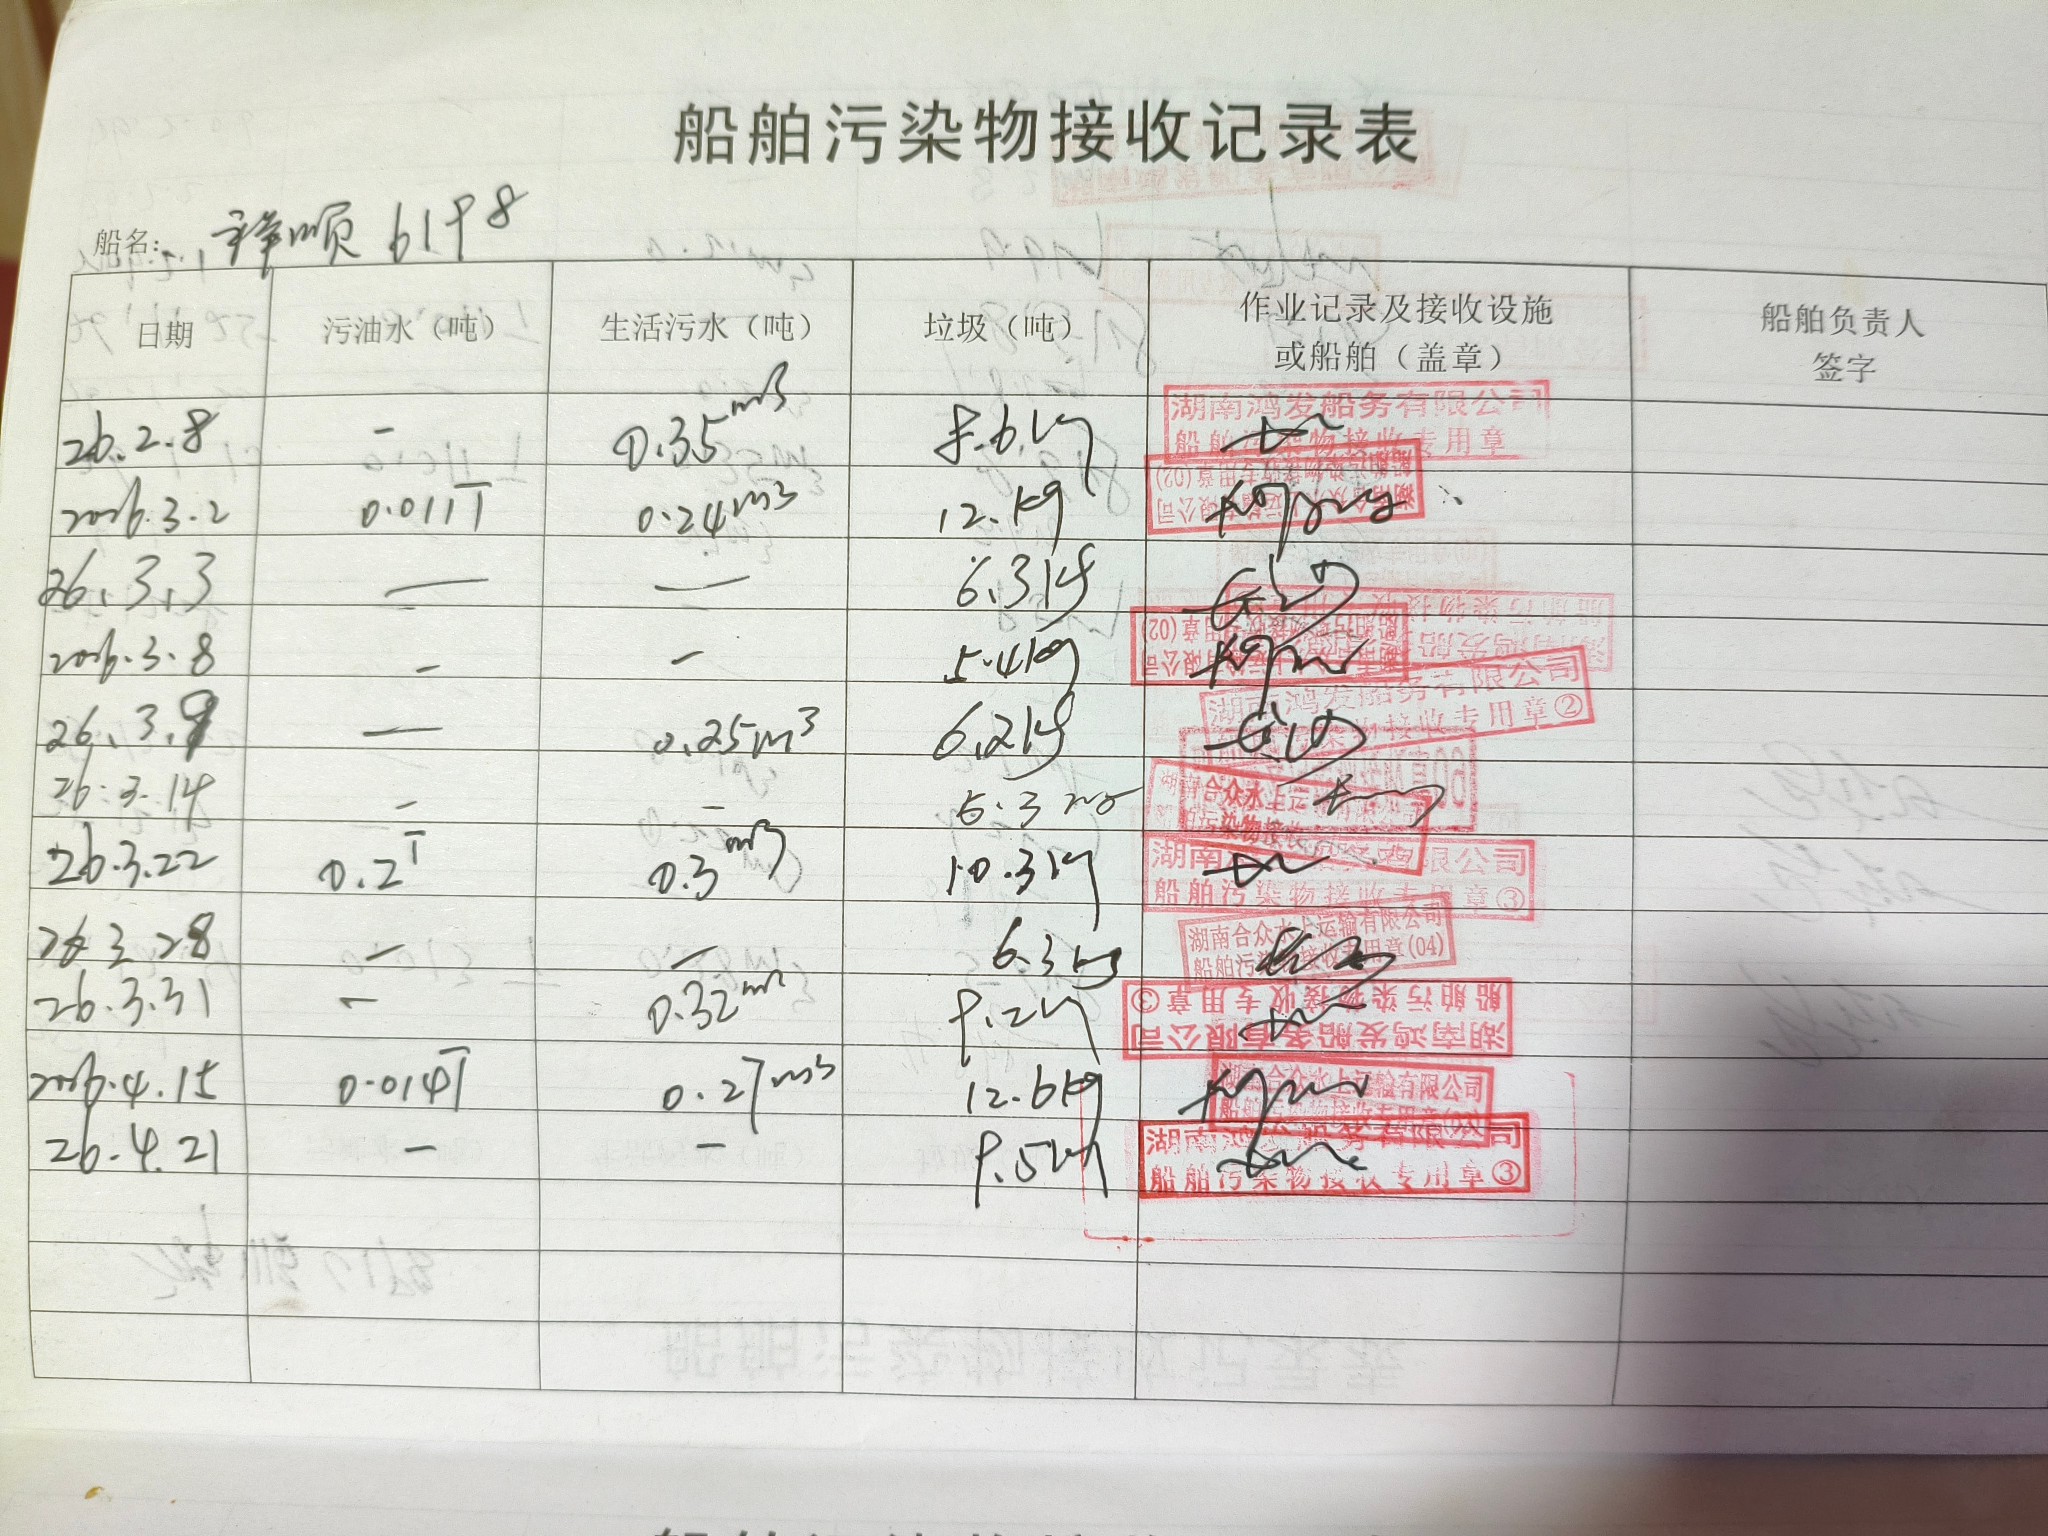 船舶污染物接收记录表
船名: 祥顺 6198
日期 污油水（吨） 生活污水（吨） 垃圾（吨） 作业记录及接收设施或船舶（盖章） 船舶负责人签字
26.2.8 - 0.35m3 8.6kg 湖南鸿发船务有限公司 船舶污染物接收专用章
2026.3.2 0.011T 0.24m3 12.kg
26.3.3 — — 6.3kg
2026.3.8 - - 5.4kg
26.3.9 — 0.25m3 6.2kg 湖南鸿发船务有限公司 船舶污染物接收专用章②
26.3.14 - - 5.3 湖南合众水上运
26.3.22 0.2T 0.3m3 10.3kg 船舶污染物接收专用章③
26.3.28 - - 6.3kg 湖南合众水上运输有限公司 船舶污染物接收专用章(04)
26.3.31 - 0.32m3 9.2kg 湖南鸿发船务有限公司 船舶污染物接收专用章③
2026.4.15 0.014T 0.27m3 12.6kg 湖南合众水上运输有限公司
26.4.21 - - 9.5kg 湖南鸿发船务有限公司 船舶污染物接收专用章③